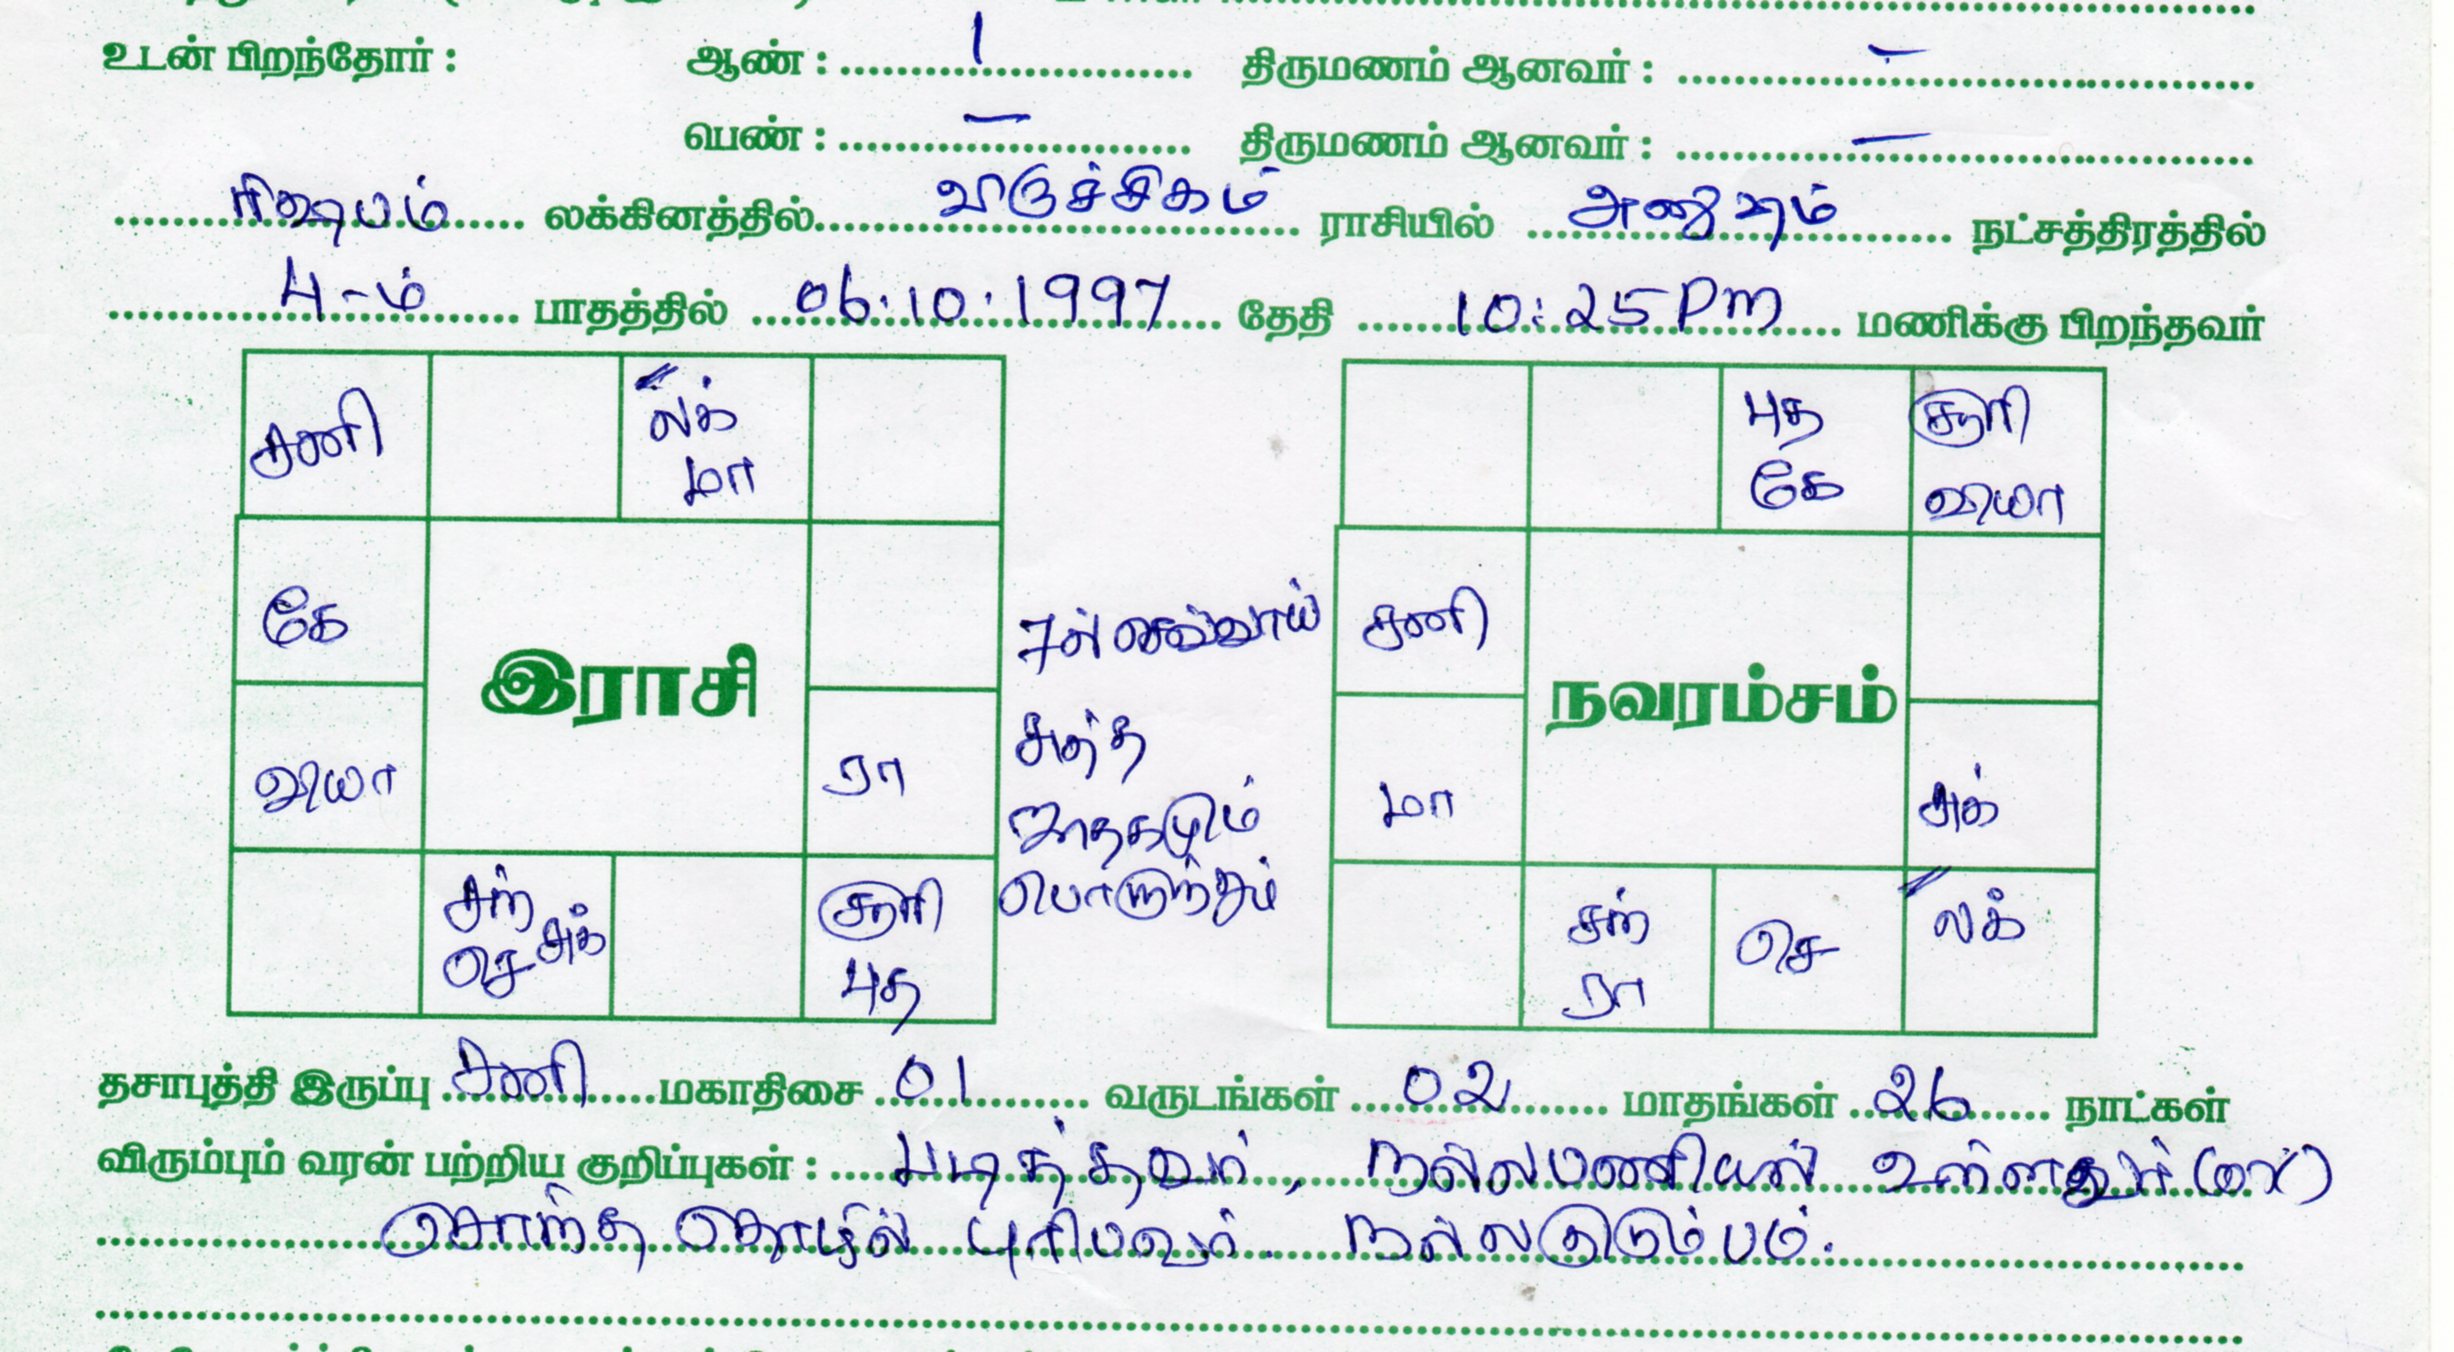 உடன் பிறந்தோர் : ஆண் : 1 திருமணம் ஆனவர் : –
பெண் : – திருமணம் ஆனவர் : –
ரிஷபம் லக்கினத்தில் விருச்சிகம் ராசியில் அனுஷம் நட்சத்திரத்தில்
4-ம் பாதத்தில் 06.10.1997 தேதி 10:25 Pm மணிக்கு பிறந்தவர்
சனி
லக்
மா
கே
இராசி
வியா
ரா
சந்
செ அக்
சூரி
புத
7ல் செவ்வாய்
சுத்த
ஜாதகமும்
பொருந்தும்
புத
கே
சூரி
வியா
சனி
நவரம்சம்
மா
சுக்
சந்
ரா
செ
லக்
தசாபுத்தி இருப்பு சனி மகாதிசை 01 வருடங்கள் 02 மாதங்கள் 26 நாட்கள்
விரும்பும் வரன் பற்றிய குறிப்புகள் : படித்தவர், நல்லபணியில் உள்ளவர் (or)
சொந்த தொழில் புரிபவர். நல்லகுடும்பம்.